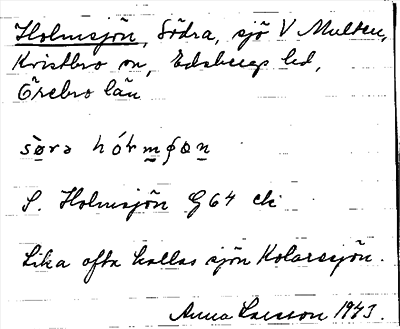 Holmsjön, Södra, sjö V Multen,
Kristbro on, Edsbergs hd,
Örebro län
S. Holmsjön G64 ek
Lika ofta kallas sjön Kolarsjön.
Anna Larsson 1943.